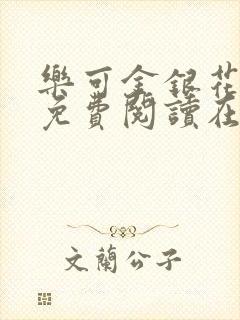 樂可金銀花
免費閱讀在
文蘭公子